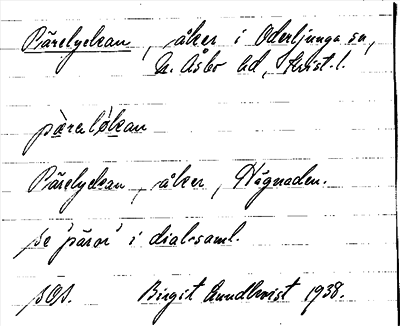 Pärelyckan, åker i Oderljunga sn,
N. Åsbo hd, Krist. l.
pàrelỳkan
Pärelyckan, åker, Hägnaden.
se 'päron' i dial.saml.
Birgit Lundkvist 1938.